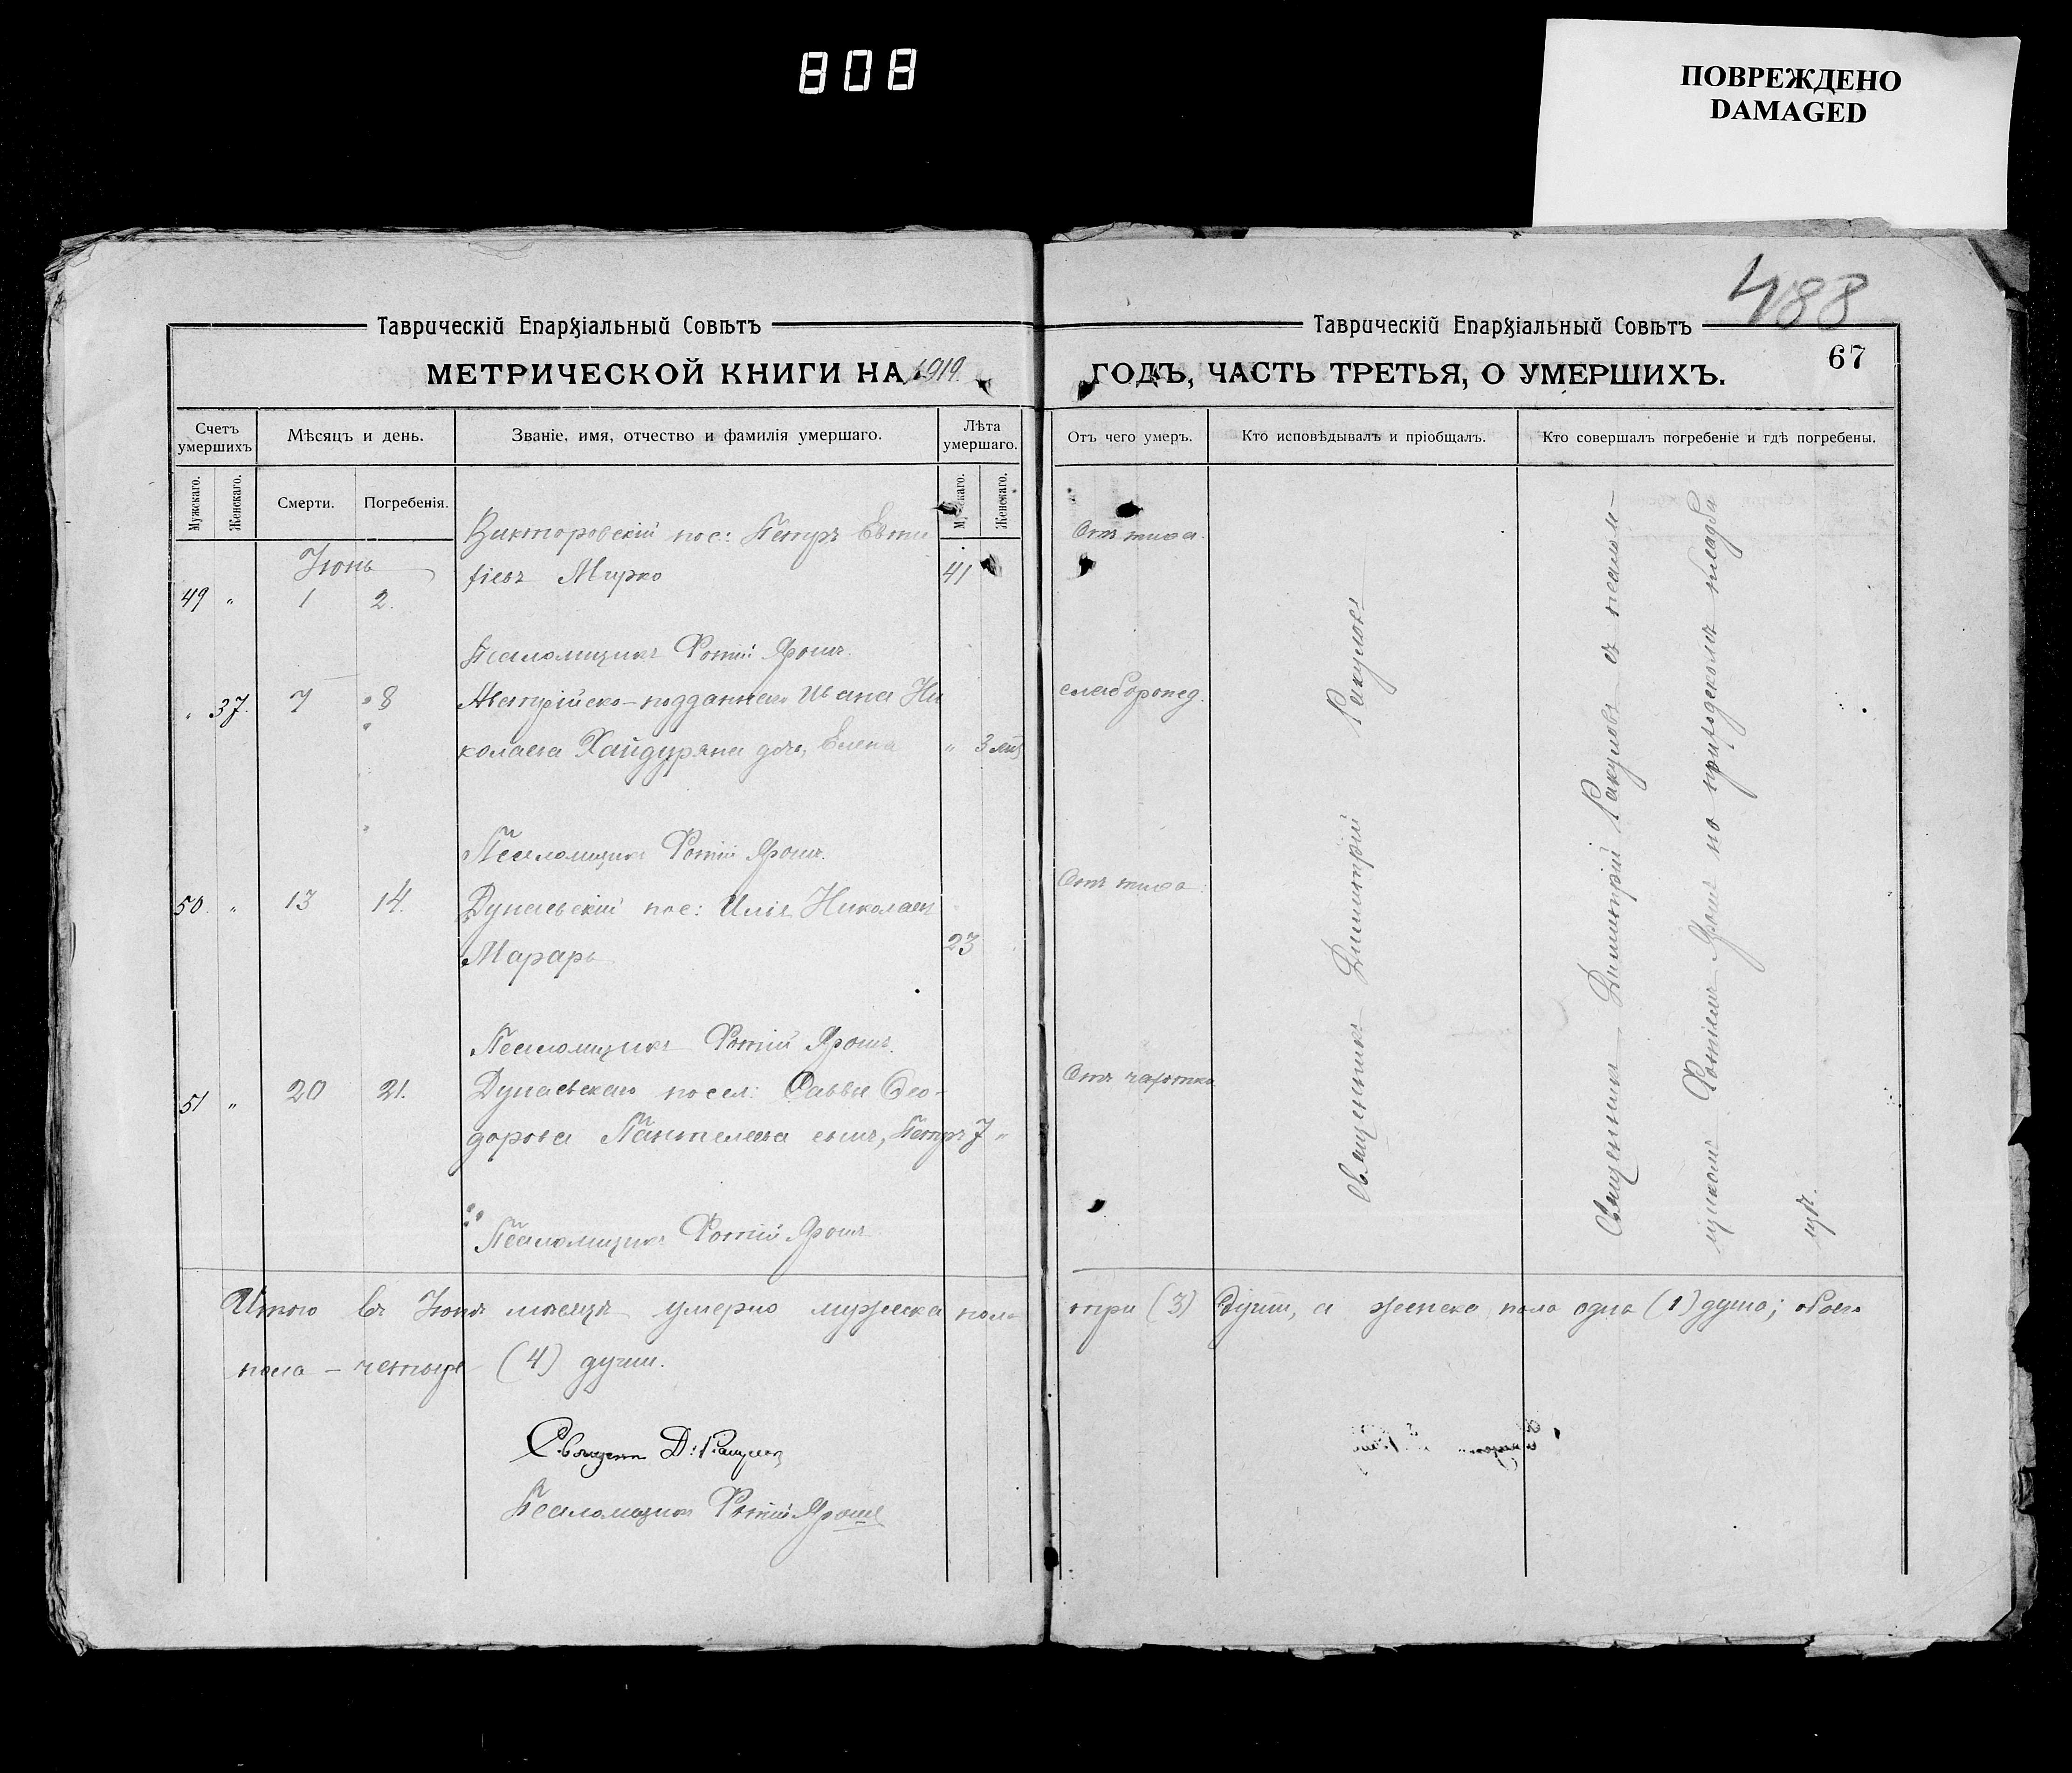 808
ПОВРЕЖДЕНО
DAMAGED
488
Таврическій Епархіальный Совѣтъ
МЕТРИЧЕСКОЙ КНИГИ НА 1919
Счетъ умершихъ
Мѣсяцъ и день.
Званіе, имя, отчество и фамилія умершаго.
Лѣта умершаго.
Мужскаго.
Женскаго.
Смерти.
Погребенія.
Мужскаго.
Женскаго.
Іюнь
Викторовскій пос: Петръ Евти
фіевъ Мирко 41
49 " 1 2.
Псаломщикъ Фотій Ярошъ.
" 37. 7 8 Австрійско-подданнаго Ивана Ни
колаева Хайдуряна дочь, Елена " 3 мѣс
Псаломщикъ Фотій Ярошъ.
50. " 13 14. Дунаевскій пос: Илія Николаевъ
Марарь 23
Псаломщикъ Фотій Ярошъ.
51 " 20 21. Дунаевскаго посел: Саввы Ѳео-
дорова Пантелеева сынъ, Петръ 7 "
Псаломщикъ Фотій Ярошъ
Итого въ Іюнѣ мѣсяцѣ умерло мужеска пола
пола - четыре (4) души.
Священ Д: Ракулов
Псаломщикъ Фотій Ярошъ
Таврическій Епархіальный Совѣтъ
67
ГОДЪ, ЧАСТЬ ТРЕТЬЯ, О УМЕРШИХЪ.
Отъ чего умеръ.
Кто исповѣдывалъ и пріобщалъ.
Кто совершалъ погребеніе и гдѣ погребены.
Отъ тифа.
слаборожд.
Отъ тифа.
Отъ чахотки
Священникъ Димитрій Ракуловъ
Священникъ Димитрій Ракуловъ съ псалом-
щикомъ Фотіемъ Ярошъ на приходскомъ кладби
щѣ.
три (3) души, а женска пола одна (1) душа; обоего